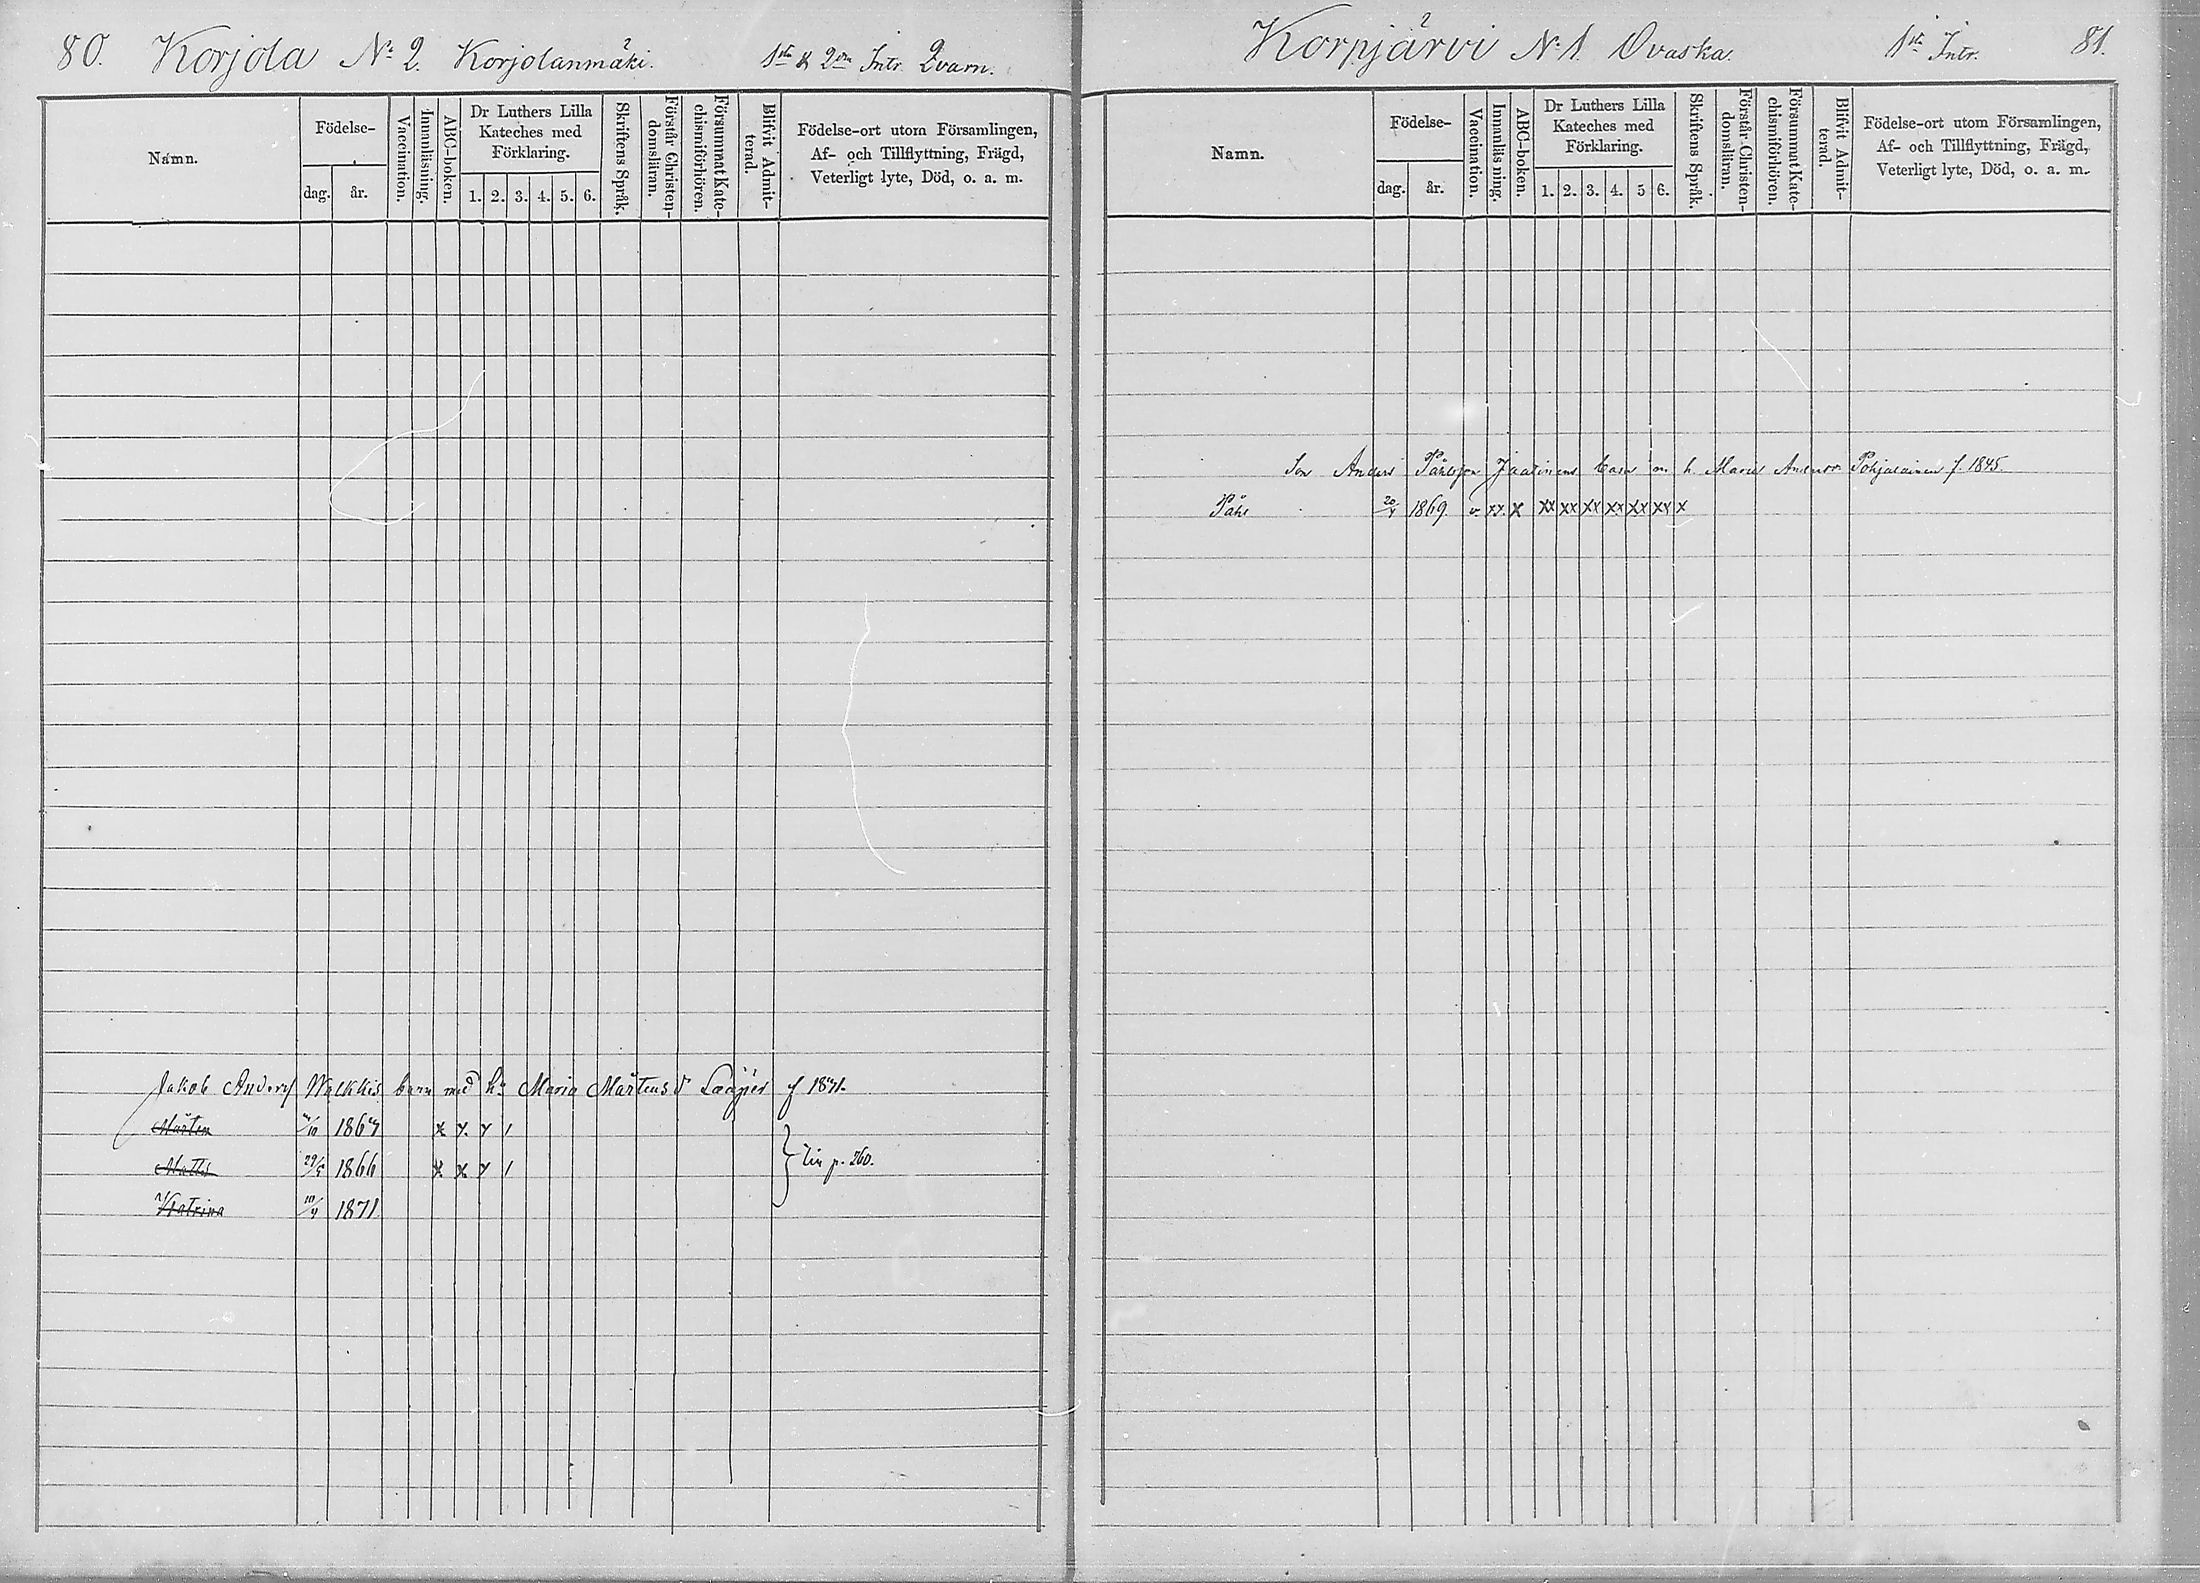 80. Korjola No 2. Korjolanmäki. 1sta & 2dra Intr. Qvarn.
Namn.
Födelse-
dag.
år.
Vaccination.
Innanläsning.
ABC-boken.
Dr Luthers Lilla
Kateches med
Förklaring.
1. 2. 3. 4. 5. 6.
Skriftens Språk.
Förstår Christen-
domsläran.
Försummat Kate-
chismiförhören.
Blifvit Admit-
terad.
Födelse-ort utom Församlingen,
Af- och Tillflyttning, Frägd,
Veterligt lyte, Död, o. a. m.
Jakob Walkkis barn med Maria Mårtens d
Mårten
Matts 29/5 1866 x x y /
Katrina 1871
p. 260.
Korpjärvi No 1. Ovaska. 1sta Intr. 81.
Namn.
Födelse-
dag.
år.
Vaccination.
Innanläsning.
ABC-boken.
Dr Luthers Lilla
Kateches med
Förklaring.
1. 2. 3. 4. 5 6.
Skriftens Språk.
Förstår Christen-
domsläran.
Försummat Kate-
chismiförhören.
Blifvit Admit-
terad.
Födelse-ort utom Församlingen,
Af- och Tillflyttning, Frägd,
Veterligt lyte, Död, o. a. m.
Son Anders Påhlsson Jaatinens barn m. h. Maria Andersd. Pohjalainen f. 1845.
Påhl 1869. v. xx. x xx xx xx xx xx xx x